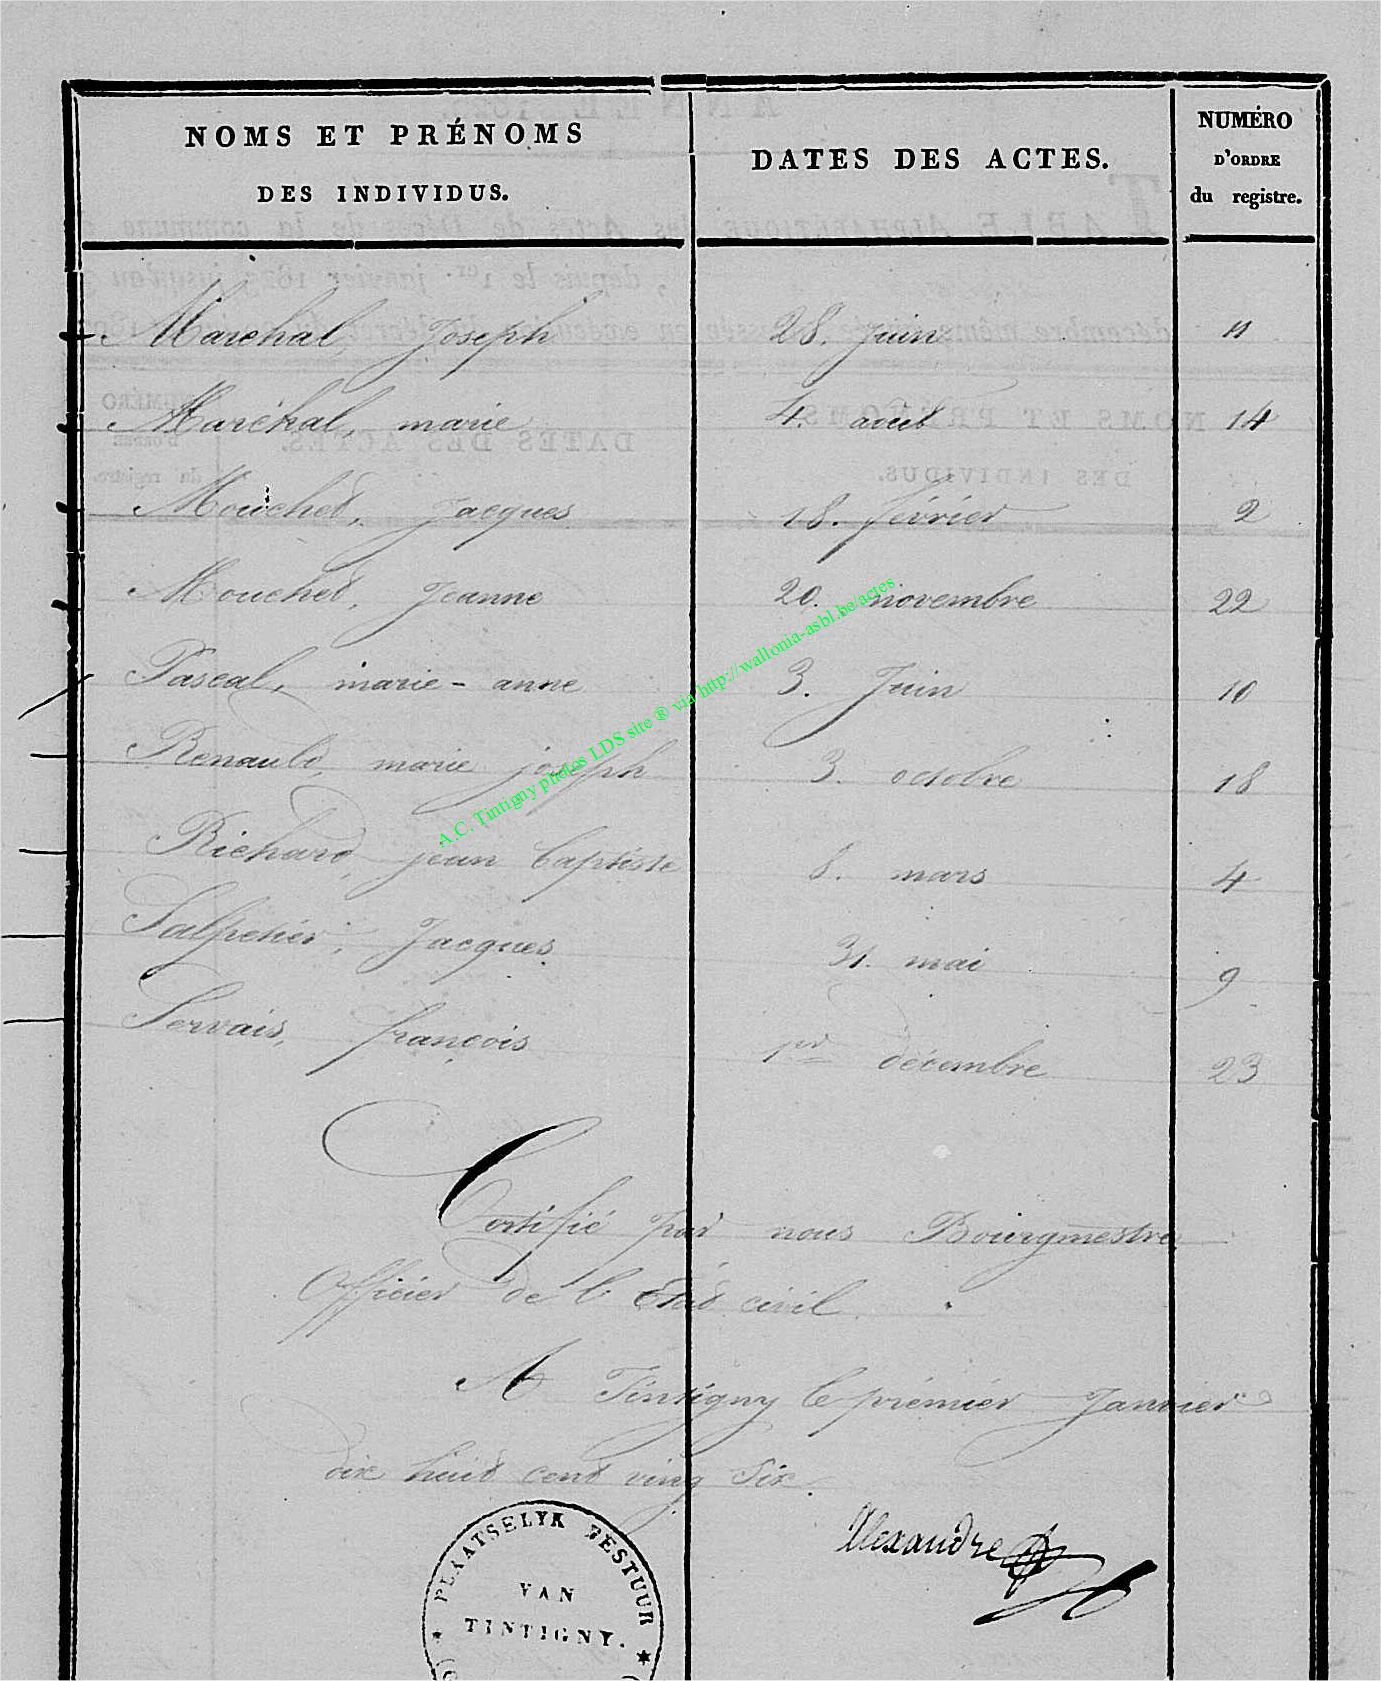 NOMS ET PRÉNOMS
DES INDIVIDUS.
DATES DES ACTES.
NUMÉRO
D'ORDRE
du registre.
Maréchal, Joseph 28. Juin 11
Maréchal, marie 4. août 14
Mouchet, Jacques 18. février 2
Mouchet, Jeanne 20. novembre 22
Pascal, marie-anne 3. Juin 10
Renauld, marie joseph 3. octobre 18
Richard, jean baptiste 8. mars 4
Salpetier, Jacques 31. mai 9
Servais, françois 1er décembre 23
Certifié par nous Bourgmestre
Officier de l'Etat civil.
A Tintigny le prémiér Janvier
dix huit cent ving Six.
Alexandre
PLAATSELYK BESTUUR
VAN
TINTIGNY.
A.C. Tintigny photos LDS site ® via http://wallonia-asbl.be/actes